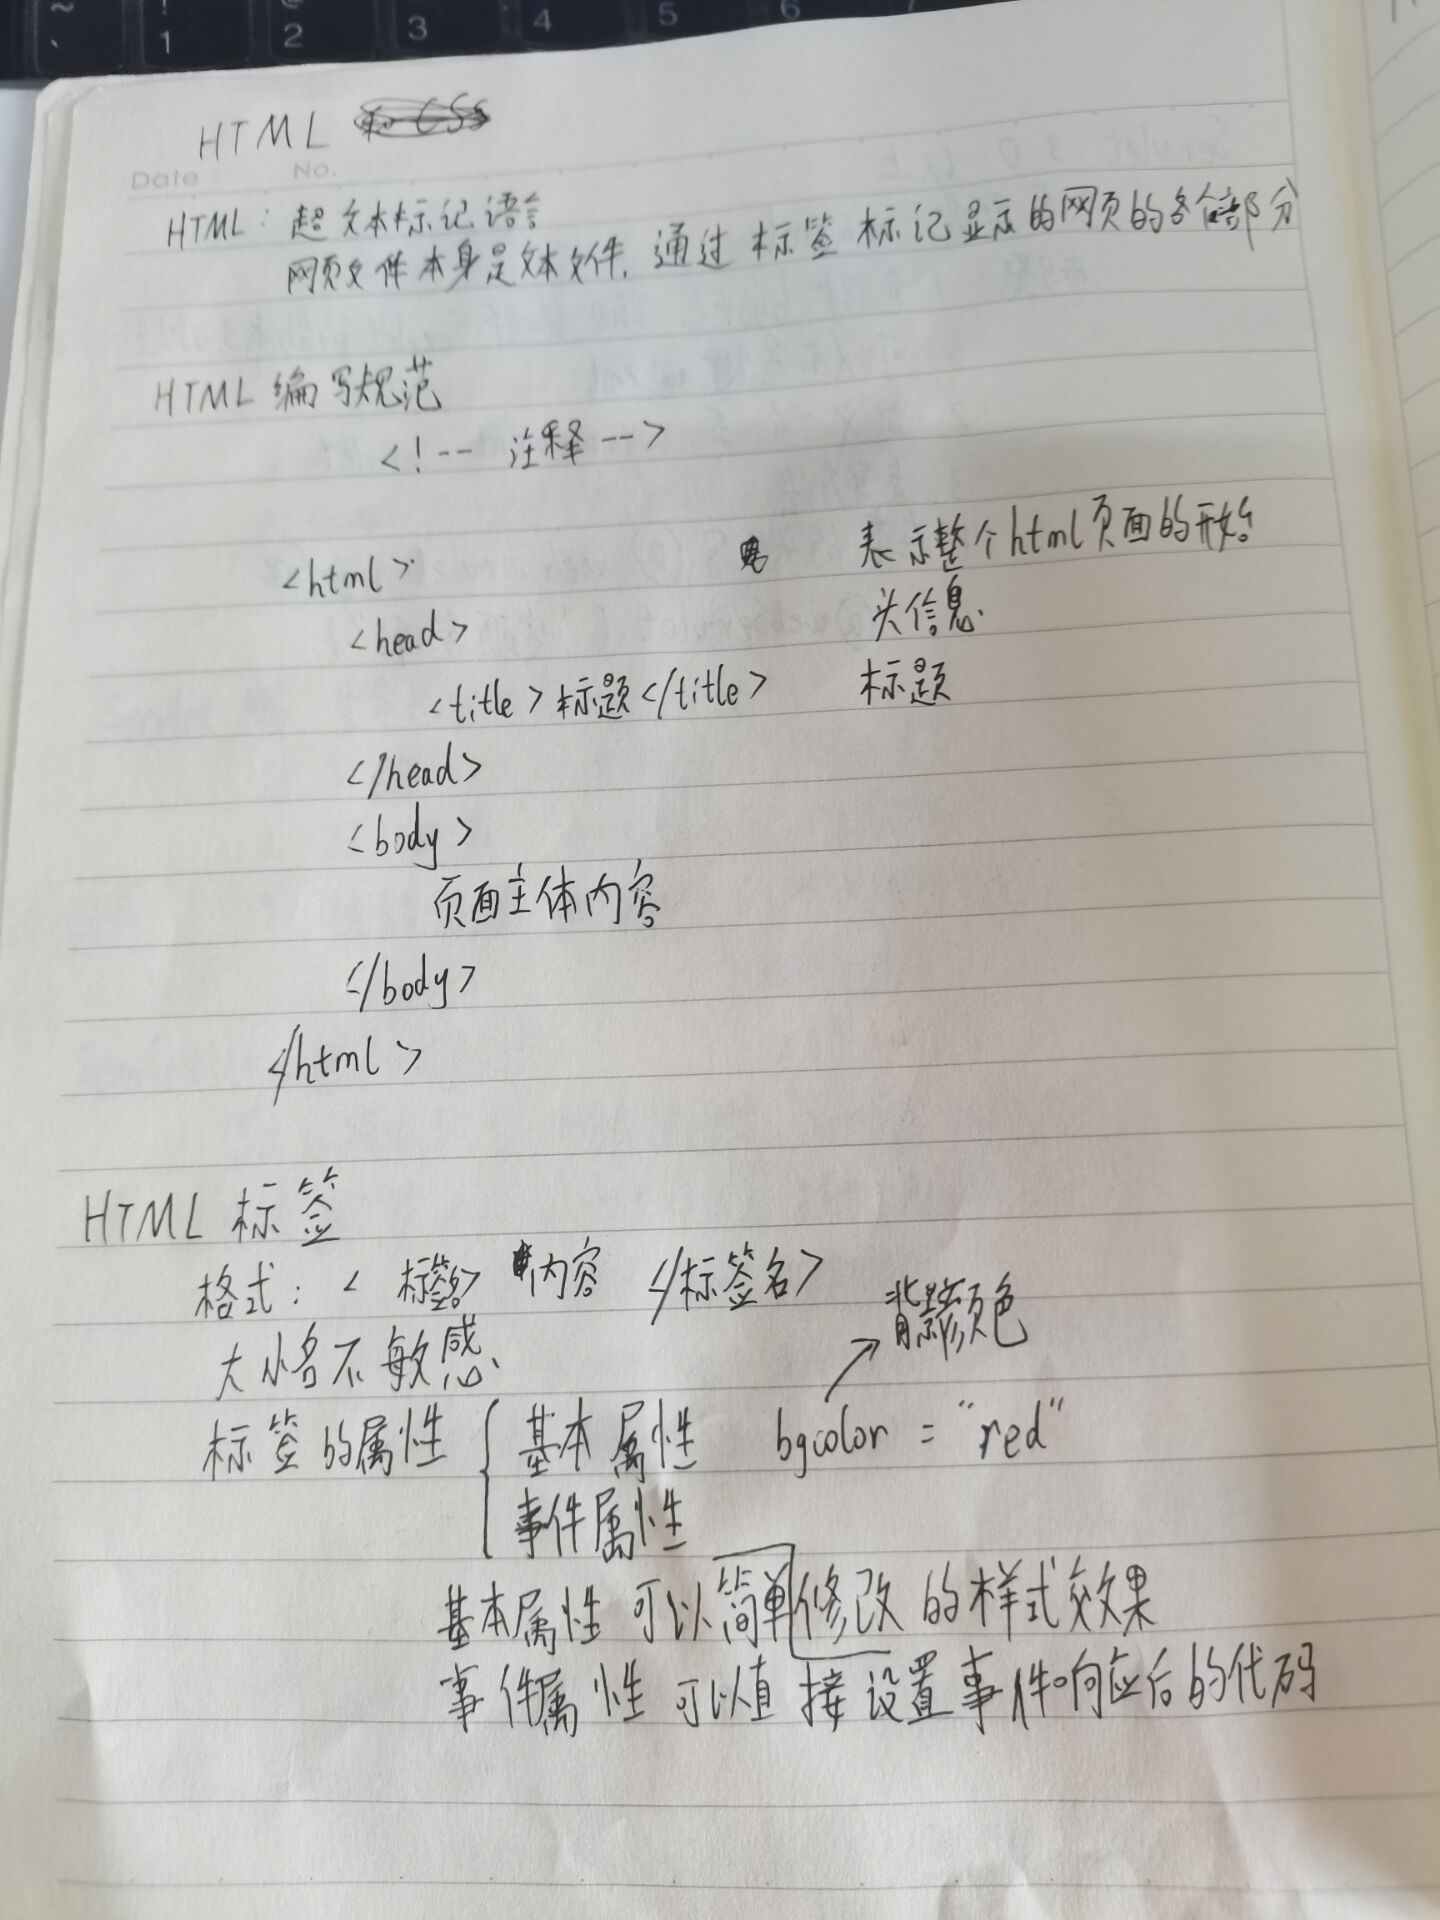 ~ ` ! 1 @ 2 3 4 5 6
HTML
Date No.
HTML: 超文本标记语言
网页文件本身是文本文件, 通过标签标记显示的网页的各个部分
HTML 编写规范
<!-- 注释 -->
<html> 表示整个html页面的开始
<head> 头信息.
<title>标题</title> 标题
</head>
<body>
页面主体内容
</body>
</html>
HTML 标签
格式: <标签名> 内容 </标签名>
背景颜色
大小写不敏感
标签的属性 { 基本属性 bgcolor = "red"
事件属性
基本属性 可以简单修改的样式效果
事件属性 可以直接设置事件响应后的代码